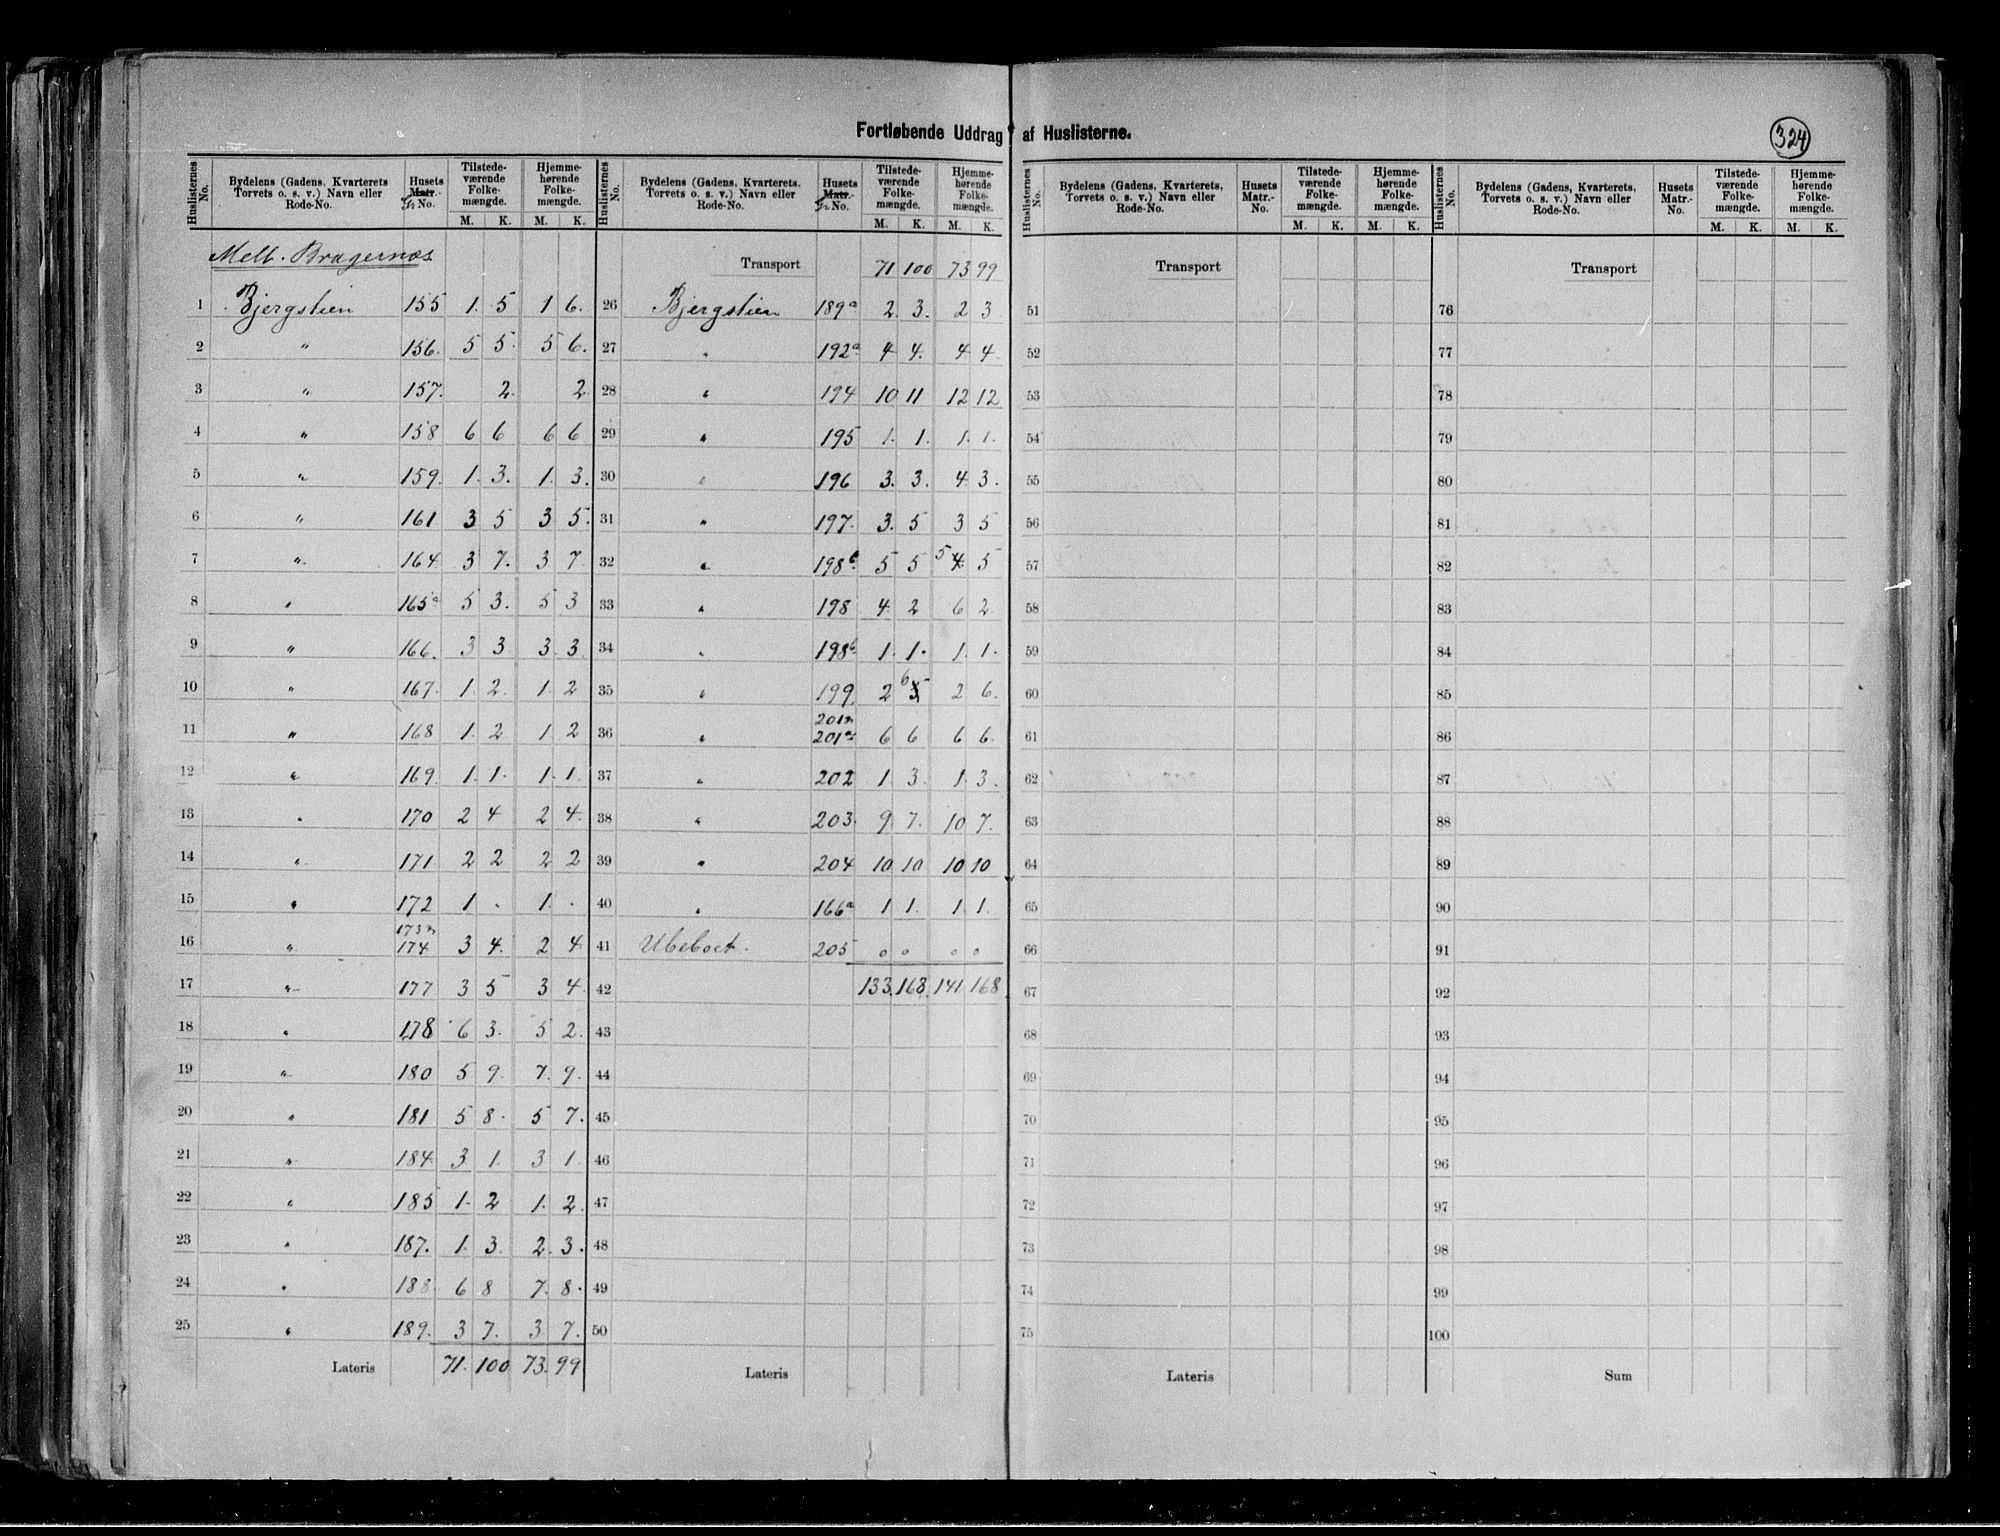 Fortløbende Uddrag af Huslisterne.
324
Huslisternes No. | Bydelens (Gadens, Kvarterets Torvets o. s. v.) Navn eller Rode-No. | Husets Matr.- Gr No. | Tilstede-værende Folke-mængde. M. K. | Hjemme-hørende Folke-mængde. M. K.
Mell. Bragernæs.
1 Bjergstien 155 1. 5 1 6.
2 " 156. 5 5. 5 6.
3 " 157. 2. 2
4 " 158 6 6 6 6
5 " 159. 1. 3. 1. 3.
6 " 161 3 5 3 5.
7 " 164. 3 7. 3 7
8 " 165a 5 3. 5 3
9 " 166. 3 3 3. 3.
10 " 167. 1. 2. 1. 2
11 " 168 1. 2 1. 2
12 " 169. 1. 1. 1. 1.
13 " 170 2 4 2 4.
14 " 171 2 2 2 2
15 " 172 1 . 1. .
16 " 173 & 174 3 4. 2 4
17 " 177 3 5 3 4
18 " 178 6 3. 5 2
19 " 180 5 9. 7. 9.
20 " 181 5 8. 5 7.
21 " 184. 3 1. 3 1
22 " 185 1. 2 1. 2.
23 " 187. 1. 3. 2. 3.
24 " 188. 6 8 7. 8.
25 " 189. 3 7. 3 7.
Lateris 71. 100 73. 99
Huslisternes No. | Bydelens (Gadens, Kvarterets, Torvets o. s. v.) Navn eller Rode-No. | Husets Matr.- Gr No. | Tilstede-værende Folke-mængde. M. K. | Hjemme-hørende Folke-mængde. M. K.
Transport 71 100 73 99
26 Bjergstien 189a 2. 3. 2 3
27 " 192a 4. 4. 4. 4
28 " 194 10 11 12 12
29 " 195 1. 1. 1. 1.
30 " 196 3. 3. 4. 3.
31 " 197. 3. 5 3 5
32 " 198b 5 5 5 4 5
33 " 198 4. 2 6 2.
34 " 198b 1. 1. 1. 1.
35 " 199. 2 6 5 2 6.
36 " 201 & 201a 6 6 6 6.
37 " 202 1. 3. 1. 3.
38 " 203. 9. 7. 10 7.
39 " 204 10 10 10 10
40 " 166a 1 1. 1. 1.
41 Ubeboet. 205 0 0 0 0
42 133. 168. 141 168
43
44
45
46
47
48
49
50
Lateris
Huslisternes No. | Bydelens (Gadens, Kvarterets Torvets o. s. v.) Navn eller Rode-No. | Husets Matr.-No. | Tilstede-værende Folke-mængde. M. K. | Hjemme-hørende Folke-mængde. M. K.
Transport
51
52
53
54
55
56
57
58
59
60
61
62
63
64
65
66
67
68
69
70
71
72
73
74
75
Lateris
Huslisternes No. | Bydelens (Gadens, Kvarterets, Torvets o. s. v.) Navn eller Rode-No. | Husets Matr.-No. | Tilstede-værende Folke-mængde. M. K. | Hjemme-hørende Folke-mængde. M. K.
Transport
76
77
78
79
80
81
82
83
84
85
86
87
88
89
90
91
92
93
94
95
96
97
98
99
100
Sum